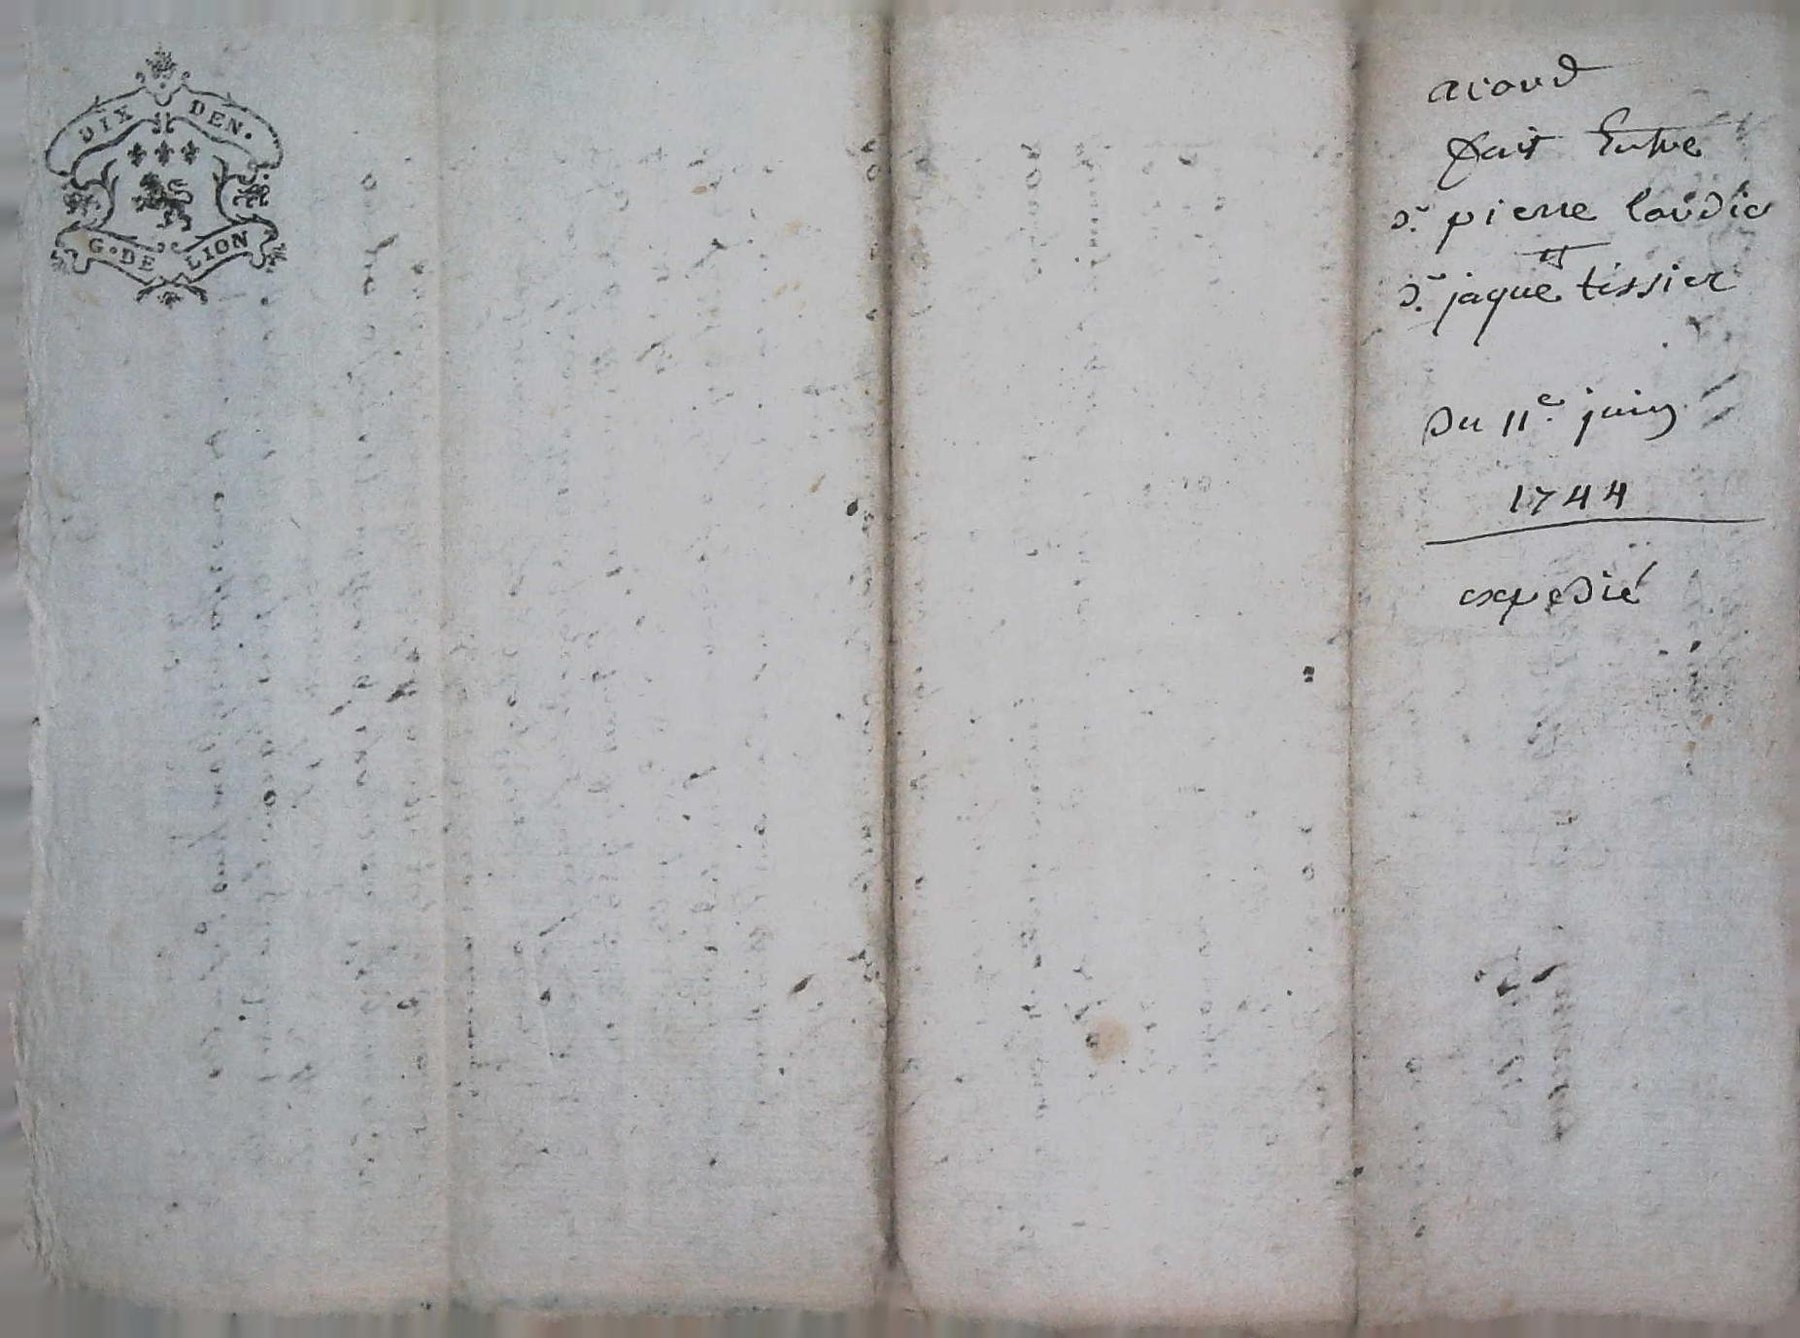 DIX DEN.
G. DE LION
acord
fait Entre
Sr. pierre
et
Sr. jaque tissier
Du 11e. juin
1744
expedié